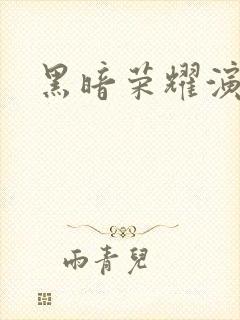 黑暗荣耀演
雨青兒